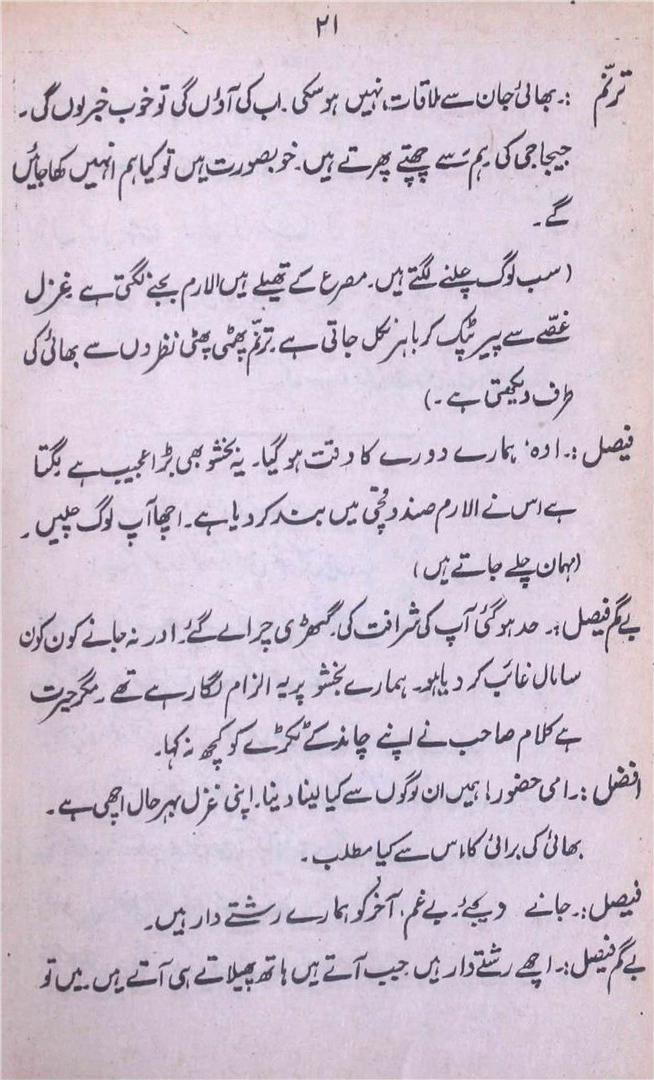 ۲۱
ترنّم :۔ بھائی جان سے ملاقات نہیں ہو سکی ۔ اب کی آؤں گی تو خوب خبر لوں گی ۔
جیجا جی کی ہم سے چھپتے پھرتے ہیں۔ خوبصورت ہیں تو کیا ہم انہیں کھا جائیں
گے ۔
(سب لوگ چلنے لگتے ہیں۔ مصرع کے تھیلے میں الارم بجنے لگتی ہے غزل
غصّے سے پیر ٹپک کر باہر نکل جاتی ہے۔ ترنّم پھٹی پھٹی نظروں سے بھائی کی
طرف دیکھتی ہے ۔)
فیصل :۔ اوہ، ہمارے دورے کا وقت ہو گیا۔ یہ بخشو بھی بڑا عجیب ہے لگتا
ہے اس نے الارم صندوقچی میں بند کر دیا ہے ۔ اچھا آپ لوگ چلیں ۔
(مہمان چلے جاتے ہیں)
بیگم فیصل :۔ حد ہو گئی آپ کی شرافت کی۔ گھڑی چرا لے گئے۔ اور نہ جانے کون کون
سامان غائب کر دیا ہو۔ ہمارے بخشو پر یہ الزام لگا رہے تھے ۔ مگر حیرت
ہے کلام صاحب نے اپنے چاند کے ٹکڑے کو کچھ نہ کہا۔
افضل :۔ امی حضور! ہمیں ان لوگوں سے کیا لینا دینا۔ اپنی غزل بہرحال اچھی ہے ۔
بھائی کی برائی کا اس سے کیا مطلب ۔
فیصل :۔ جانے دیجئے۔ بے غم، آخر کو ہمارے رشتے دار ہیں۔
بیگم فیصل :۔ اچھے رشتے دار ہیں جیب آتے ہیں ہاتھ پھیلاتے ہی آتے ہیں ۔ میں تو